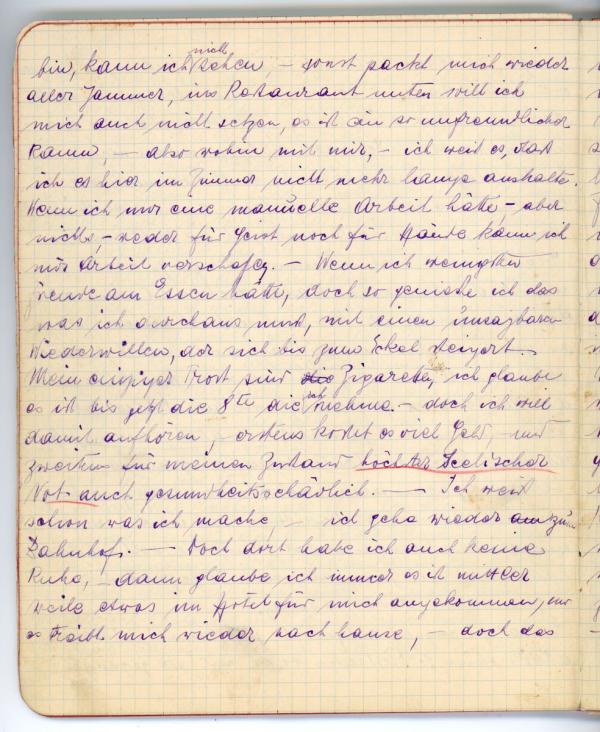 bin, kann ich nicht sehen, – sonst packt mich wieder
aller Jammer, ins Restaurant unten will ich
mich auch nicht setzen, es ist ein so unfreundlicher
Raum, – also wohin mit mir, – ich weis es, dass
ich es hier im Zimmer nicht mehr lange aushalte.
Wenn ich nur eine manuelle Arbeit hätte – aber
nichts, – weder für Geist noch für Hände kann ich
mir Arbeit verschaffen. – Wenn ich wenigsten
Freude am Essen hätte, doch so geniese ich das
was ich durchaus muss, mit einen unsagbaren
Wiederwillen, der sich bis zum Eckel steigert.
Mein einziger Trost sind die Zigaretten, ich glaube
es ist bis jetzt die 8te die ich nehme. – doch ich will
damit aufhören, – erstens kostet es viel Geld, und
zweitens für meinen Zustand höchster Seelischer
Not auch gesundheitsschädlich. — Ich weis
schon was ich mache, – ich gehe wieder am zum
Bahnhof. — Doch dort habe ich auch keine
Ruhe, – dann glaube ich immer es ist mittler
weile etwas im Hotel für mich angekommen, und
es treibt mich wieder nach hause, – doch das